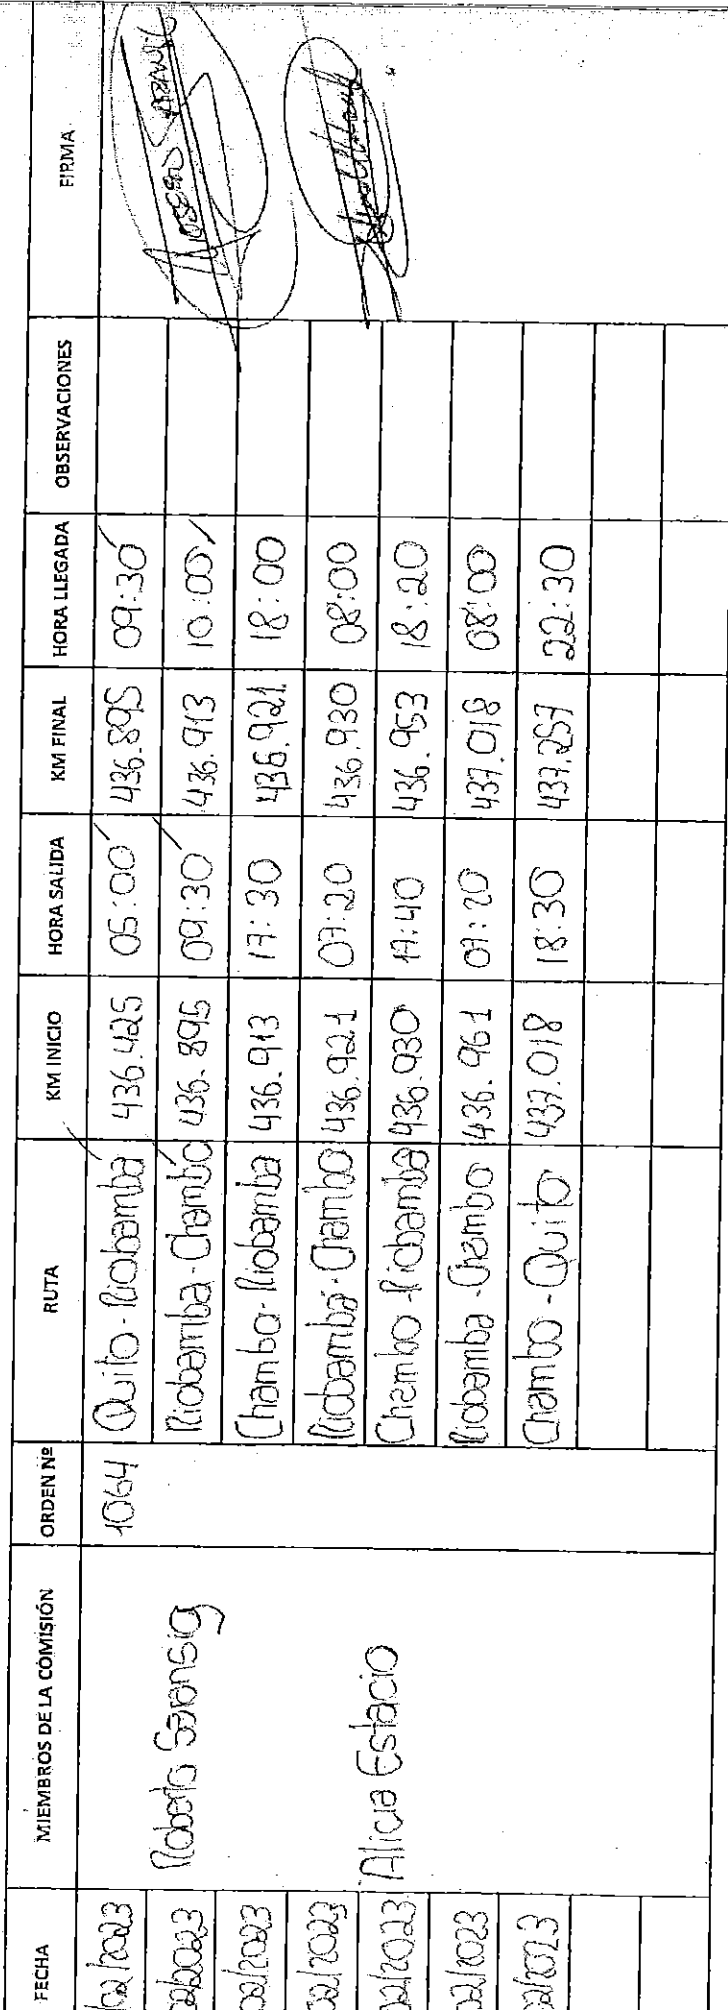 FECHA MIEMBROS DE LA COMISIÓN ORDEN Nº RUTA KM INICIO HORA SALIDA KM FINAL HORA LLEGADA OBSERVACIONES FIRMA
/02/2023 1064 Quito - Riobamba 436.425 05:00 436.895 09:30
02/2023 Roberto Saransig Riobamba - Chambo 436.895 09:30 436.913 10:00
02/2023 Chambo - Riobamba 436.913 17:30 436.921 18:00
02/2023 Riobamba - Chambo 436.921 07:20 436.930 08:00
02/2023 Alicia Estacio Chambo - Riobamba 436.930 17:40 436.953 18:20
02/2023 Riobamba - Chambo 436.961 07:20 437.018 08:00
02/2023 Chambo - Quito 437.018 18:30 437.257 22:30